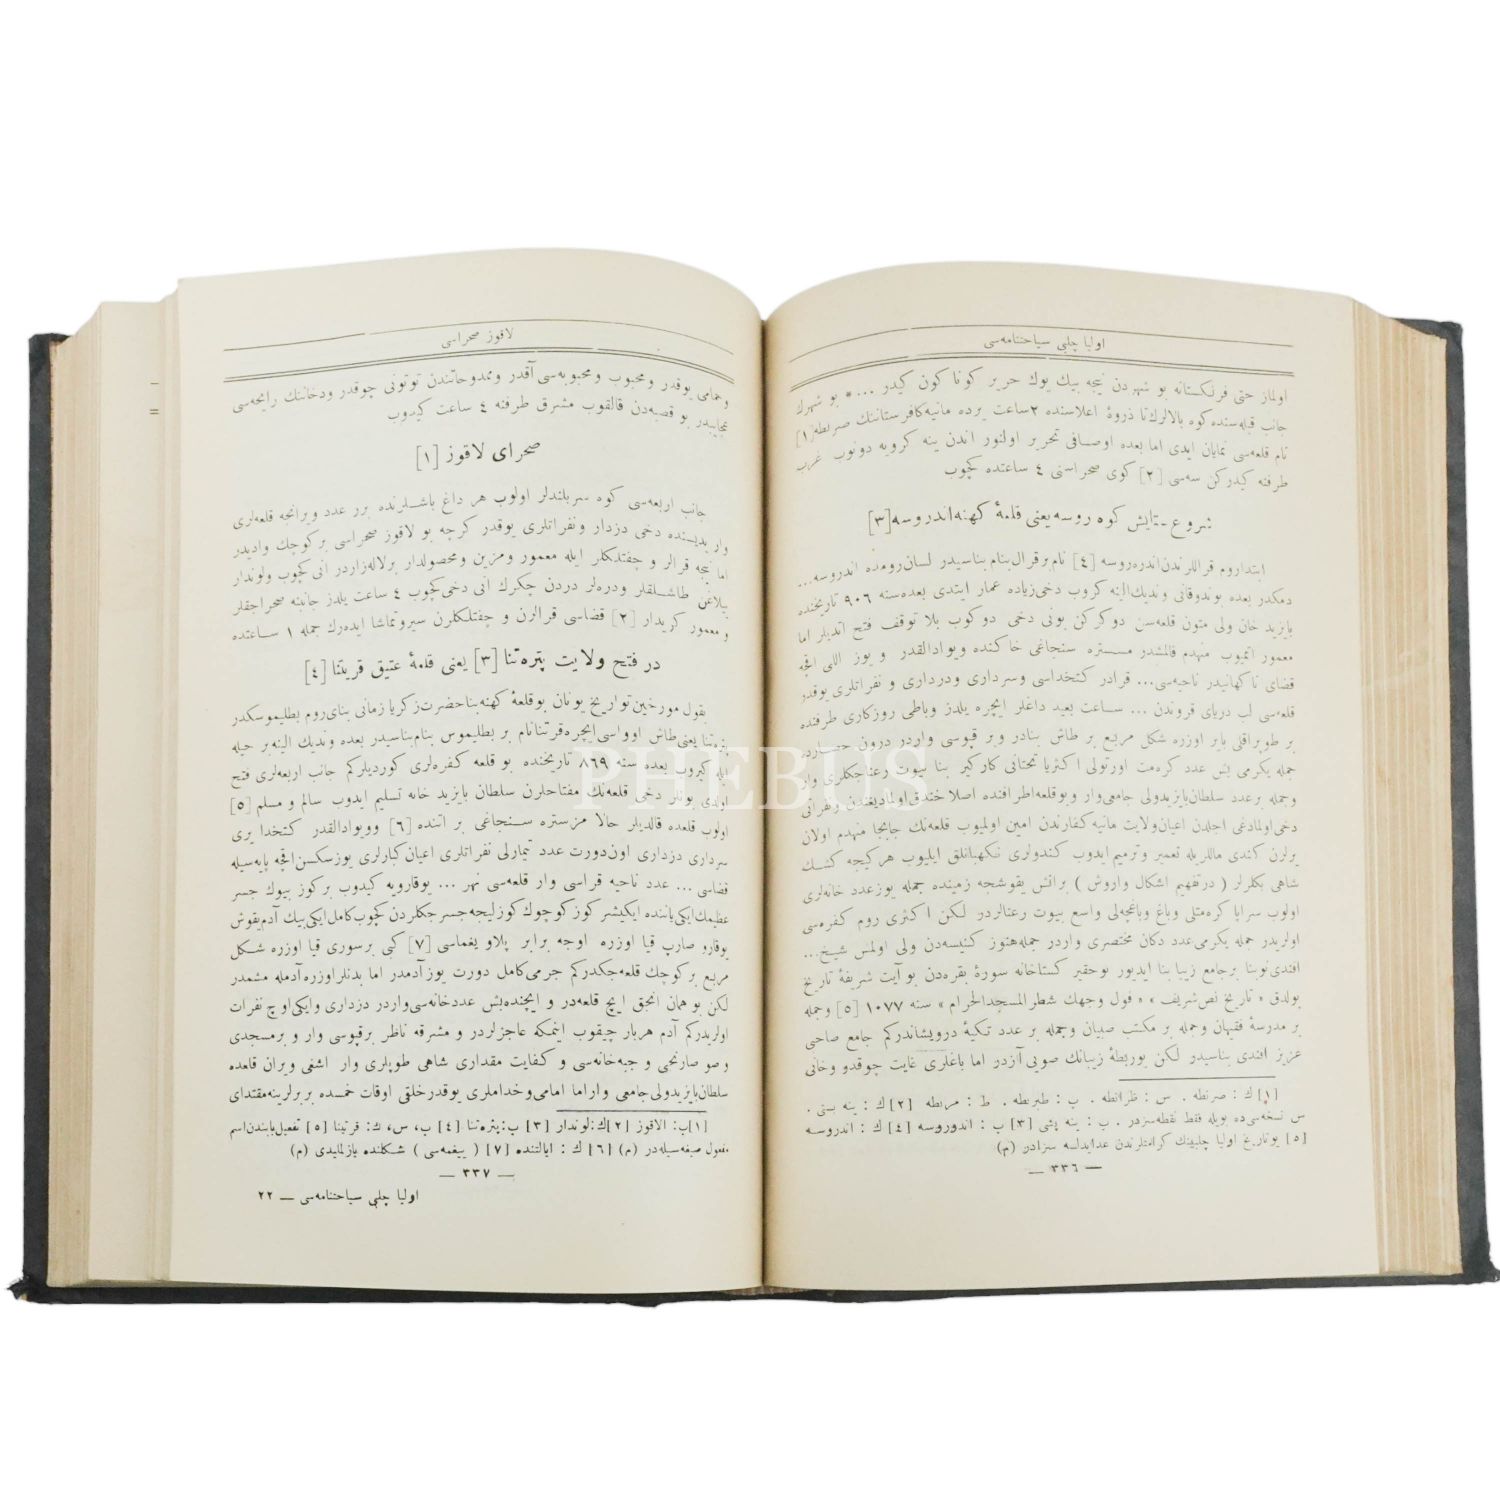 اوليا چلبى سياحتنامه‌سى
اولماز حتى فرنكستانه بو شهردن نيجه بيك يوك حرير كونا كون كيدر ... * بو شهرك
جانب قبله‌سنده كوه بالالرك تا ذروۀ اعلاسنده ٢ ساعت يرده مانيه كافرستاننك صرنطه [١]
نام قلعه‌سى نمايان ايدى اما بعده اوصافى تحرير اولنور اندن ينه كرويه دونوب غرب
طرفنه كيدركن سه‌سى [٢] كوى صحراسنى ٤ ساعتده كچوب
شروع ـ ستايش كوه روسه يعنى قلعۀ كهنه اندروسه [٣]
ابتدا روم قراللرندن اندره‌روسه [٤] نام بر قرال بنام بناسيدر لسان رومده اندروسه ...
دمكدر بعده بوندوقانى ونديك الينه كروب دخى زياده عمار ايتدى بعده سنه ٩٠٦ تاريخنده
بايزيد خان ولى متون قلعه‌سن دوكركن بونى دخى دوكوب بلا توقف فتح ايتديلر اما
معمور ايتميوب منهدم قالمشدر مستره سنجاغى خاكنده ويوادالقدر و يوز اللى اقچه
قضاى ناكهانيدر ناحيه‌سى ... قرادر كتخداسى وسردارى ودزدارى و نفراتلرى يوقدر
قلعه‌سى لب درياى قروندن ... ساعت بعيد داغلر ايچره يلدز وباطى روزكارى طرفنده
بر طوپراقلى باير اوزره شكل مربع بر طاش بنادر وبر قپوسى واردر درون حصارده
جمله يكرمى بش عدد كره‌مت اورتولى اكثريا تحتانى كاركير بنا بيوت رعناجكلرى وار
وجمله بر عدد سلطان بايزيد ولى جامعى وار وبو قلعه اطرافنده اصلا خندقى اولماديغندن ونفراتى
دخى اولمادغى اجلدن اعيان ولايت مانيه كفارندن امين اولميوب قلعه‌نك جابجا منهدم اولان
يرلرن كندى ماللريله تعمير وترميم ايدوب كندولرى نكهبانلق ايليوب هر كيجه كشك
شاهى بكلرلر ( در تفهيم اشكال واروش ) برانش يقوشجه زمينده جمله يوز عدد خانه‌لرى
اولوب سراپا كره‌متلى وباغ وباغچه‌لى واسع بيوت رعنالردر لكن اكثرى روم كفره‌سى
اولريدر جمله يكرمى عدد دكان مختصرى واردر جمله هنوز كنيسه‌دن ولى اولمش شيخ ...
افندى نوبنا بر جامع زيبا بنا ايديور بو حقير كستاخانه سورۀ بقره‌دن بو آيت شريفۀ تاريخ
بولدق « تاريخ نص شريف » « فول وجهك شطر المسجد الحرام » سنه ١٠٧٧ [٥] وجمله
بر مدرسۀ فقيهان وجمله بر مكتب صبيان وجمله بر عدد تكيۀ درويشاندركم جامع صاحبى
عزيز افندى بناسيدر لكن بو ربطۀ زيبانك صويى آزدر اما باغلرى غايت چوقدو وخانى
[١] ك : صرنطه . س : ظرانطه . پ : طبرنطه . ط : مرنطه [٢] ك : ينه بستى .
س نسخه‌سى‌ده بويله فقط نقطه‌سزدر . پ : ينه پشى [٣] پ : اندوروسه [٤] ك : اندروسه
[٥] بو تاريخ اوليا چلبينك كرامتلرندن عد ايدلسه سزادر (م)
— ٣٣٦ —
لاقوز صحراسى
وحمامى يوقدر ومحبوب ومحبوبه‌سى آقدر وممدوحاتندن توتونى چوقدر ودخاننك رايحه‌سى
عجايبدر بو قصبه‌دن قالقوب مشرق طرفنه ٤ ساعت كيدوب
صحراى لاقوز [١]
جانب اربعه‌سى كوه سربلندلر اولوب هر داغ باشلرنده برر عدد ويرانجه قلعه‌لرى
وار يديسنده دخى دزدار ونفراتلرى يوقدر كرچه بو لاقوز صحراسى بر كوچك واديدر
اما نيجه قرالر و چفتلكلر ايله معمور ومزين ومحصولدار بر لاله‌زاردر انى كچوب ولوندار
ييلاغن طاشلقلر ودره‌لر دردن چكرك انى دخى كچوب ٤ ساعت يلدز جانبنه صحراجقلر
و معمور كريدار [٢] قضاسى قرالرن و چفتلكلرن سيروتماشا ايده‌رك جمله ١ ساعتده
در فتح ولايت پتره‌تنا [٣] يعنى قلعۀ عتيق قريتنا [٤]
بقول مورخين تواريخ يونان بو قلعۀ كهنه بنا حضرت زكريا زمانى بناى روم بطليموسكدر
پتره‌تنا يعنى طاش اوواسى ايچره قرتنا نام بر بطليموس بنام بناسيدر بعده ونديك الينه بر حيله
ايله كيروب بعده سنه ٨٦٩ تاريخنده بو قلعه كفره‌لرى كورديلركم جانب اربعه‌لرى فتح
اولدى بونلر دخى قلعه‌نك مفتاحلرن سلطان بايزيد خانه تسليم ايدوب سالم و مسلم [٥]
اولوب قلعه‌ده قالديلر حالا مزستره سنجاغى بر اتنده [٦] وويوادالقدر كتخدا يرى
سردارى دزدارى اون‌دورت عدد تيمارلى نفراتلرى اعيان كبارلرى يوز سكسن اقچه پايه‌سيله
قضاسى ... عدد ناحيه قراسى وار قلعه‌سى نهر ... يوقارويه كيدوب بر كوز بيوك جسر
عظيمك ايكى ياننده ايكيشر كوز كوچوك كوزليجه جسرجكلردن كچوب كامل ايكى بيك آدم يقوش
يوقارو صارپ قيا اوزره اوجه برابر پلاو يغماسى [٧] كبى بر سورى قيا اوزره شكل
مربع بر كوچك قلعه‌جكدركم جرمى كامل دورت يوز آدمدر اما بدنلر اوزره آدمله مشمدر
لكن بو همان انجق ايچ قلعه‌در و ايچنده بش عدد خانه‌سى واردر دزدارى وايكى اوچ نفرات
اولريدركم آدم هربار چيقوب اينمكه عاجزلردر و مشرقه ناظر بر قپوسى وار و بر مسجدى
و صو صارنجى و جبه خانه‌سى و كفايت مقدارى شاهى طوپلرى وار اشغى ويران قلعه‌ده
سلطان بايزيد ولى جامعى وار اما امامى وخداملرى يوقدر خلقى اوقات خمسده بر برلرينه مقتداى
[١] پ: الاقوز [٢] ك: لوندار [٣] پ: پتره‌تنا [٤] پ، س، ك: قرتينا [٥] تفعيل بابندن اسم
مفعول صيغه‌سيله‌در (م) [٦] ك : ايالتنده [٧] ( ييغمه‌سى ) شكلنده يازلمليدى (م)
— ٣٣٧ —
اوليا چلبى سياحتنامه‌سى — ٢٢
PHEBUS